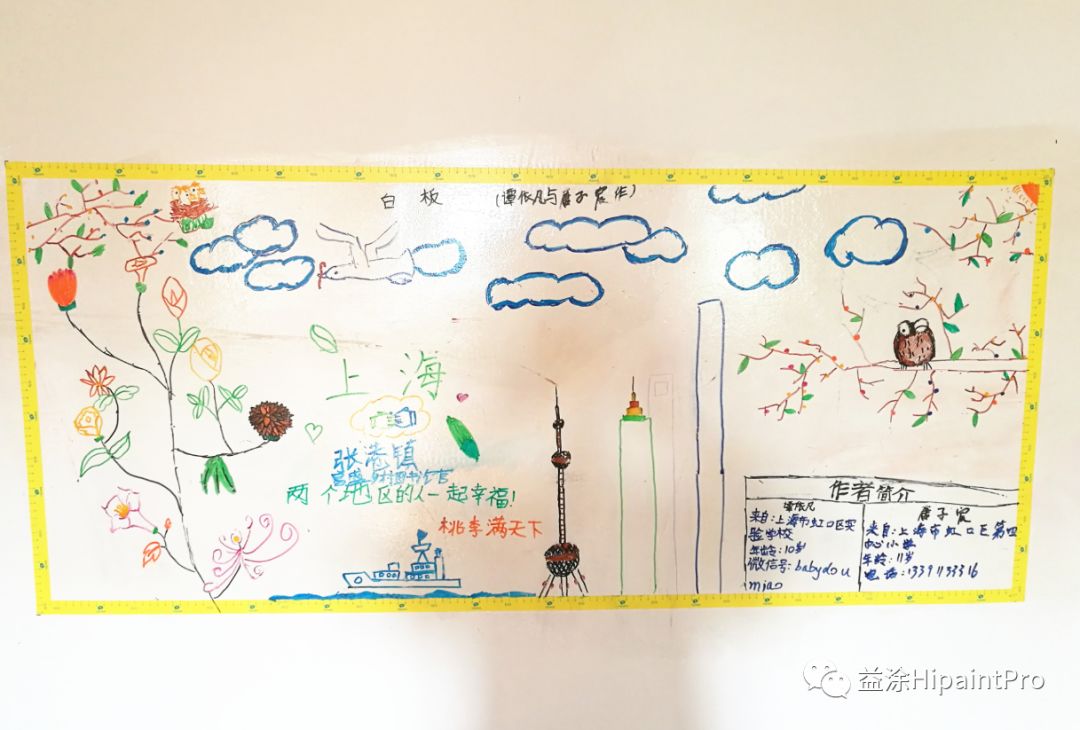 白板 (谭依凡与唐子宸作)
上海
张港镇
图书馆
两个地区的人一起幸福!
桃李满天下
作者简介
谭依凡
来自:上海市虹口区实
验学校
年龄:10岁
微信号:babydou
miao
唐子宸
来自:上海市虹口区第四
中心小学
年龄:11岁
电话:13391133316
益涂HipaintPro